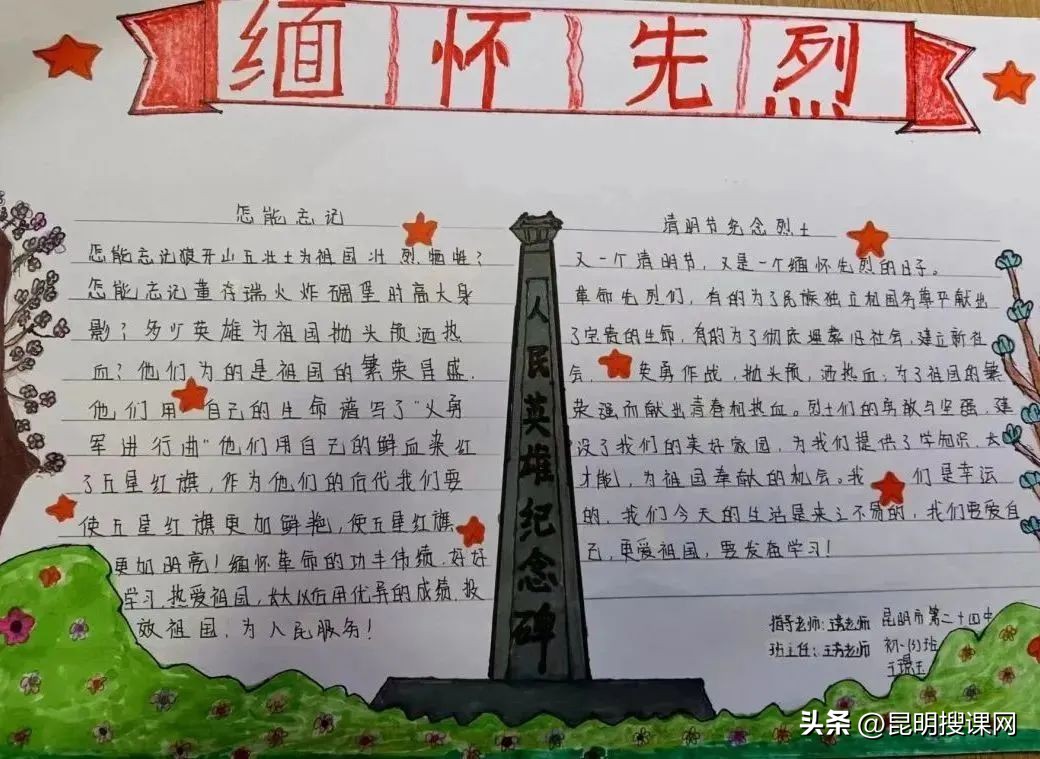 缅怀先烈
怎能忘记
怎能忘记狼牙山五壮士为祖国壮烈牺牲?
怎能忘记董存瑞火炸碉堡时高大身
影?多少英雄为祖国抛头颅洒热
血?他们为的是祖国的繁荣昌盛.
他们用自己的生命谱写了"义勇
军进行曲"他们用自己的鲜血染红
了五星红旗,作为他们的后代我们要
使五星红旗更加鲜艳,使五星红旗
更加明亮!缅怀革命的功丰伟绩,好好
学习,热爱祖国,长大以后用优异的成绩,报
效祖国,为人民服务!
人民英雄纪念碑
清明节念烈士
又一个清明节,又是一个缅怀先烈的日子。
革命先烈们,有的为了民族独立祖国尊严献出
了宝贵的生命,有的为了彻底埋葬旧社会,建立新社
会,英勇作战,抛头颅,洒热血;为了祖国的繁
荣强而献出青春和热血。烈士们的勇敢与坚强,建
设了我们的美好家园,为我们提供了学知识,长
才能,为祖国奉献的机会。我们是幸运
的,我们今天的生活是来之不易的,我们要爱自
己,更爱祖国,要发奋学习!
指导老师:老师 昆明市第二十四中
班主任:老师 初一(3)班
王
头条 @昆明搜课网